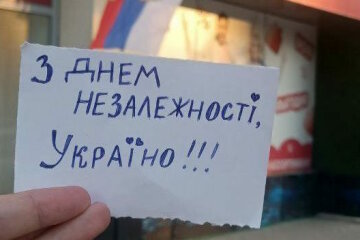 З ДНЕМ
НЕЗАЛЕЖНОСТІ,
УКРАЇНО!!!